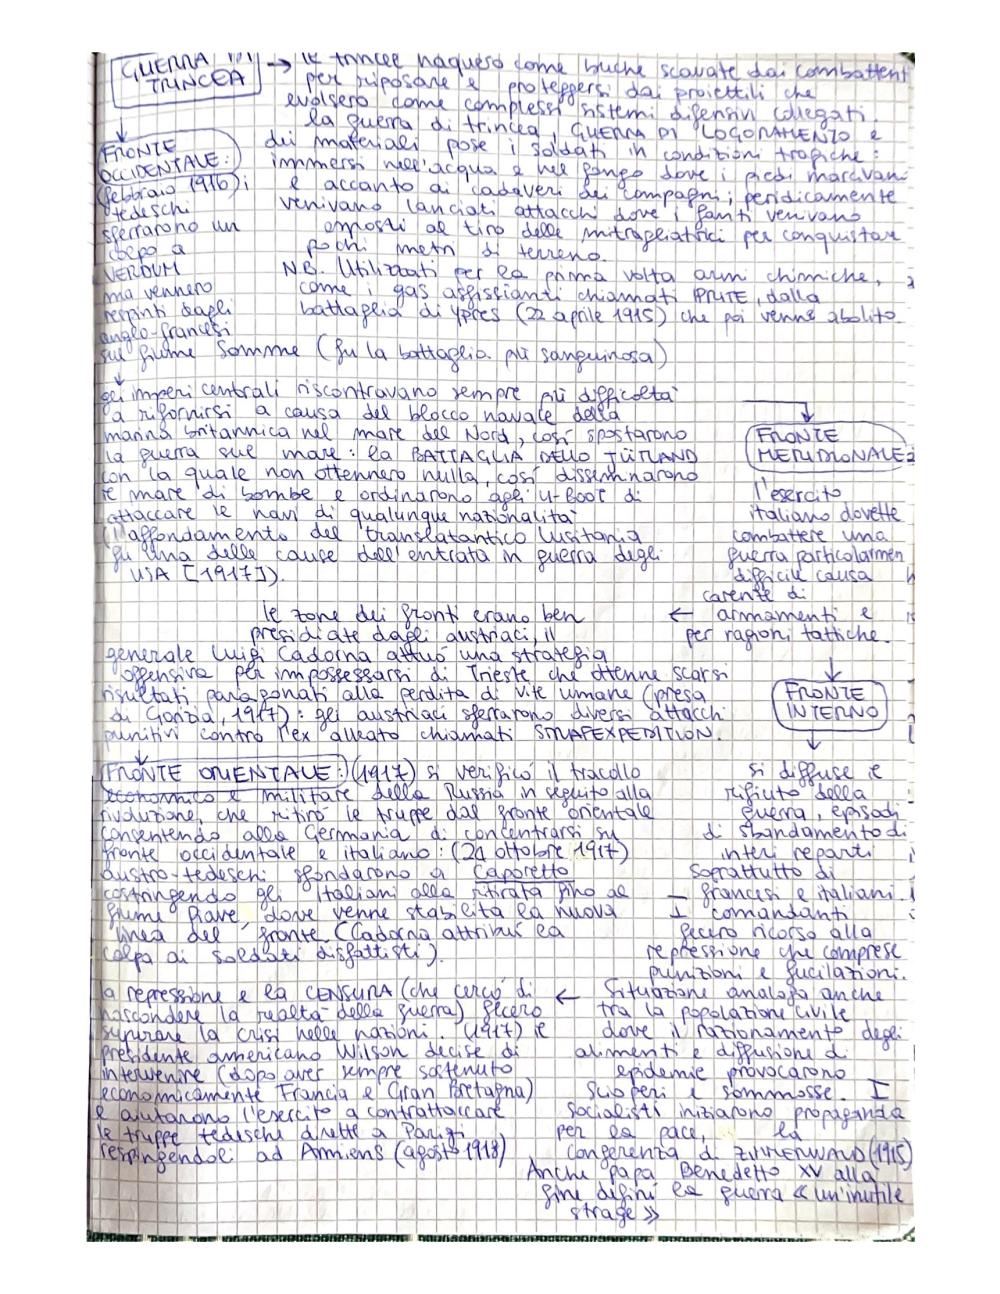 GUERRA DI
TRINCEA
→ le trincee naquero come buche scavate dai combattent
per riposare e proteggersi dai proiettili che
evolsero come complessi sistemi difensivi collegati.
la guerra di trincea, GUERRA DI LOGORAMENTO e
dei materiali pose i soldati in condizioni tragiche:
immmersi nell'acqua e nel fango dove i piedi marcivan
e accanto ai cadaveri dei compagni; peridicamente
venivano lanciati attacchi dove i fanti venivano
esposti al tiro delle mitragliatrici per conquistare
pochi metri di terreno.
NB. Utilizzati per la prima volta armi chimiche,
come i gas asfissianti chiamati IPRITE, dalla
battaglia di Ypres (22 aprile 1915) che poi venne abolito.
FRONTE
OCCIDENTALE:
(febbraio 1916) i
tedeschi
sferrarono un
colpo a
VERDUM
ma vennero
respinti dagli
anglo-francesi
sul fiume Somme (fu la battaglia più sanguinosa)
gli imperi centrali riscontravano sempre più difficoltà
a rifornirsi a causa del blocco navale della
marina britannica nel mare del Nord, così spostarono
la guerra sul mare: la BATTAGLIA DELLO JÜTLAND
con la quale non ottennero nulla, così disseminarono
il mare di bombe e ordinarono agli U-Boot di
attaccare le navi di qualunque nazionalità
(l'affondamento del translatantico Lusitania
fu una delle cause dell'entrata in guerra degli
USA [1917]).
FRONTE
MERIDIONALE:
l'esercito
italiano dovette
combattere una
guerra particolarmen
difficile causa
carente di
← armamenti e
per ragioni tattiche.
le zone dei fronti erano ben
presidiate dagli austriaci, il
generale Luigi Cadorna attuò una strategia
offensiva per impossessarsi di Trieste che ottenne scarsi
risultati paragonati alla perdita di vite umane (presa
di Gorizia, 1917): gli austriaci sferrarono diversi attacchi
punitivi contro l'ex alleato chiamati STRAFEXPEDITION.
FRONTE
INTERNO
FRONTE ORIENTALE: (1917) si verificò il tracollo
economico e militare della Russia in seguito alla
rivoluzione, che ritirò le truppe dal fronte orientale
consentendo alla Germania di concentrarsi su
fronte occidentale e italiano: (24 ottobre 1917)
austro-tedeschi sfondarono a Caporetto
costringendo gli italiani alla ritirata fino al
fiume Piave, dove venne stabilita la nuova
linea del fronte (Cadorna attribuì la
colpa ai soldati disfattisti).
si diffuse il
rifiuto della
guerra, episodi
di sbandamento di
interi reparti
soprattutto di
francesi e italiani.
I comandanti
fecero ricorso alla
repressione che comprese
punizioni e fucilazioni.
← Situazione analoga anche
tra la popolazione civile
dove il razionamento degli
alimenti e diffusione di
epidemie provocarono
scioperi e sommosse. I
socialisti iniziarono propaganda
per la pace, la
conferenza di ZIMMERWALD (1915)
Anche papa Benedetto XV alla
fine definì la guerra «un'inutile
strage»
la repressione e la CENSURA (che cercò di
nascondere la realtà della guerra) fecero
superare la crisi nelle nazioni. (1917) il
presidente americano Wilson decise di
intervenire (dopo aver sempre sostenuto
economicamente Francia e Gran Bretagna)
e aiutarono l'esercito a contrattaccare
le truppe tedeschi dirette a Parigi
respingendoli ad Amiens (agosto 1918)